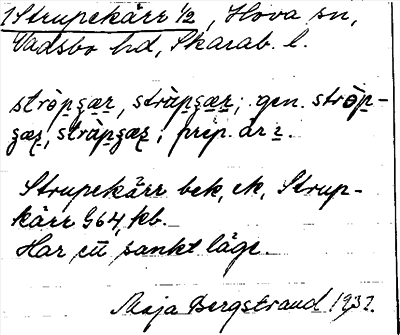 1 Strupekärr ½, Hova sn,
Vadsbo hd, Skarab. l.
strò̱pgær, stràpgær; gen. ströp-
gæs, stràpgæs; prep. är 2.
Strupekärr bek, ek, Strup-
kärr G64, kb.
Har ett sankt läge.
Maja Bergstrand 1932.